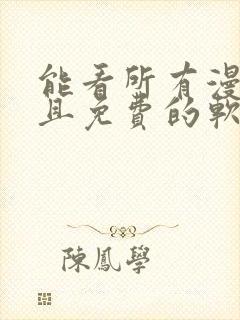 能看所有漫
且免費的軟
陳鳳學